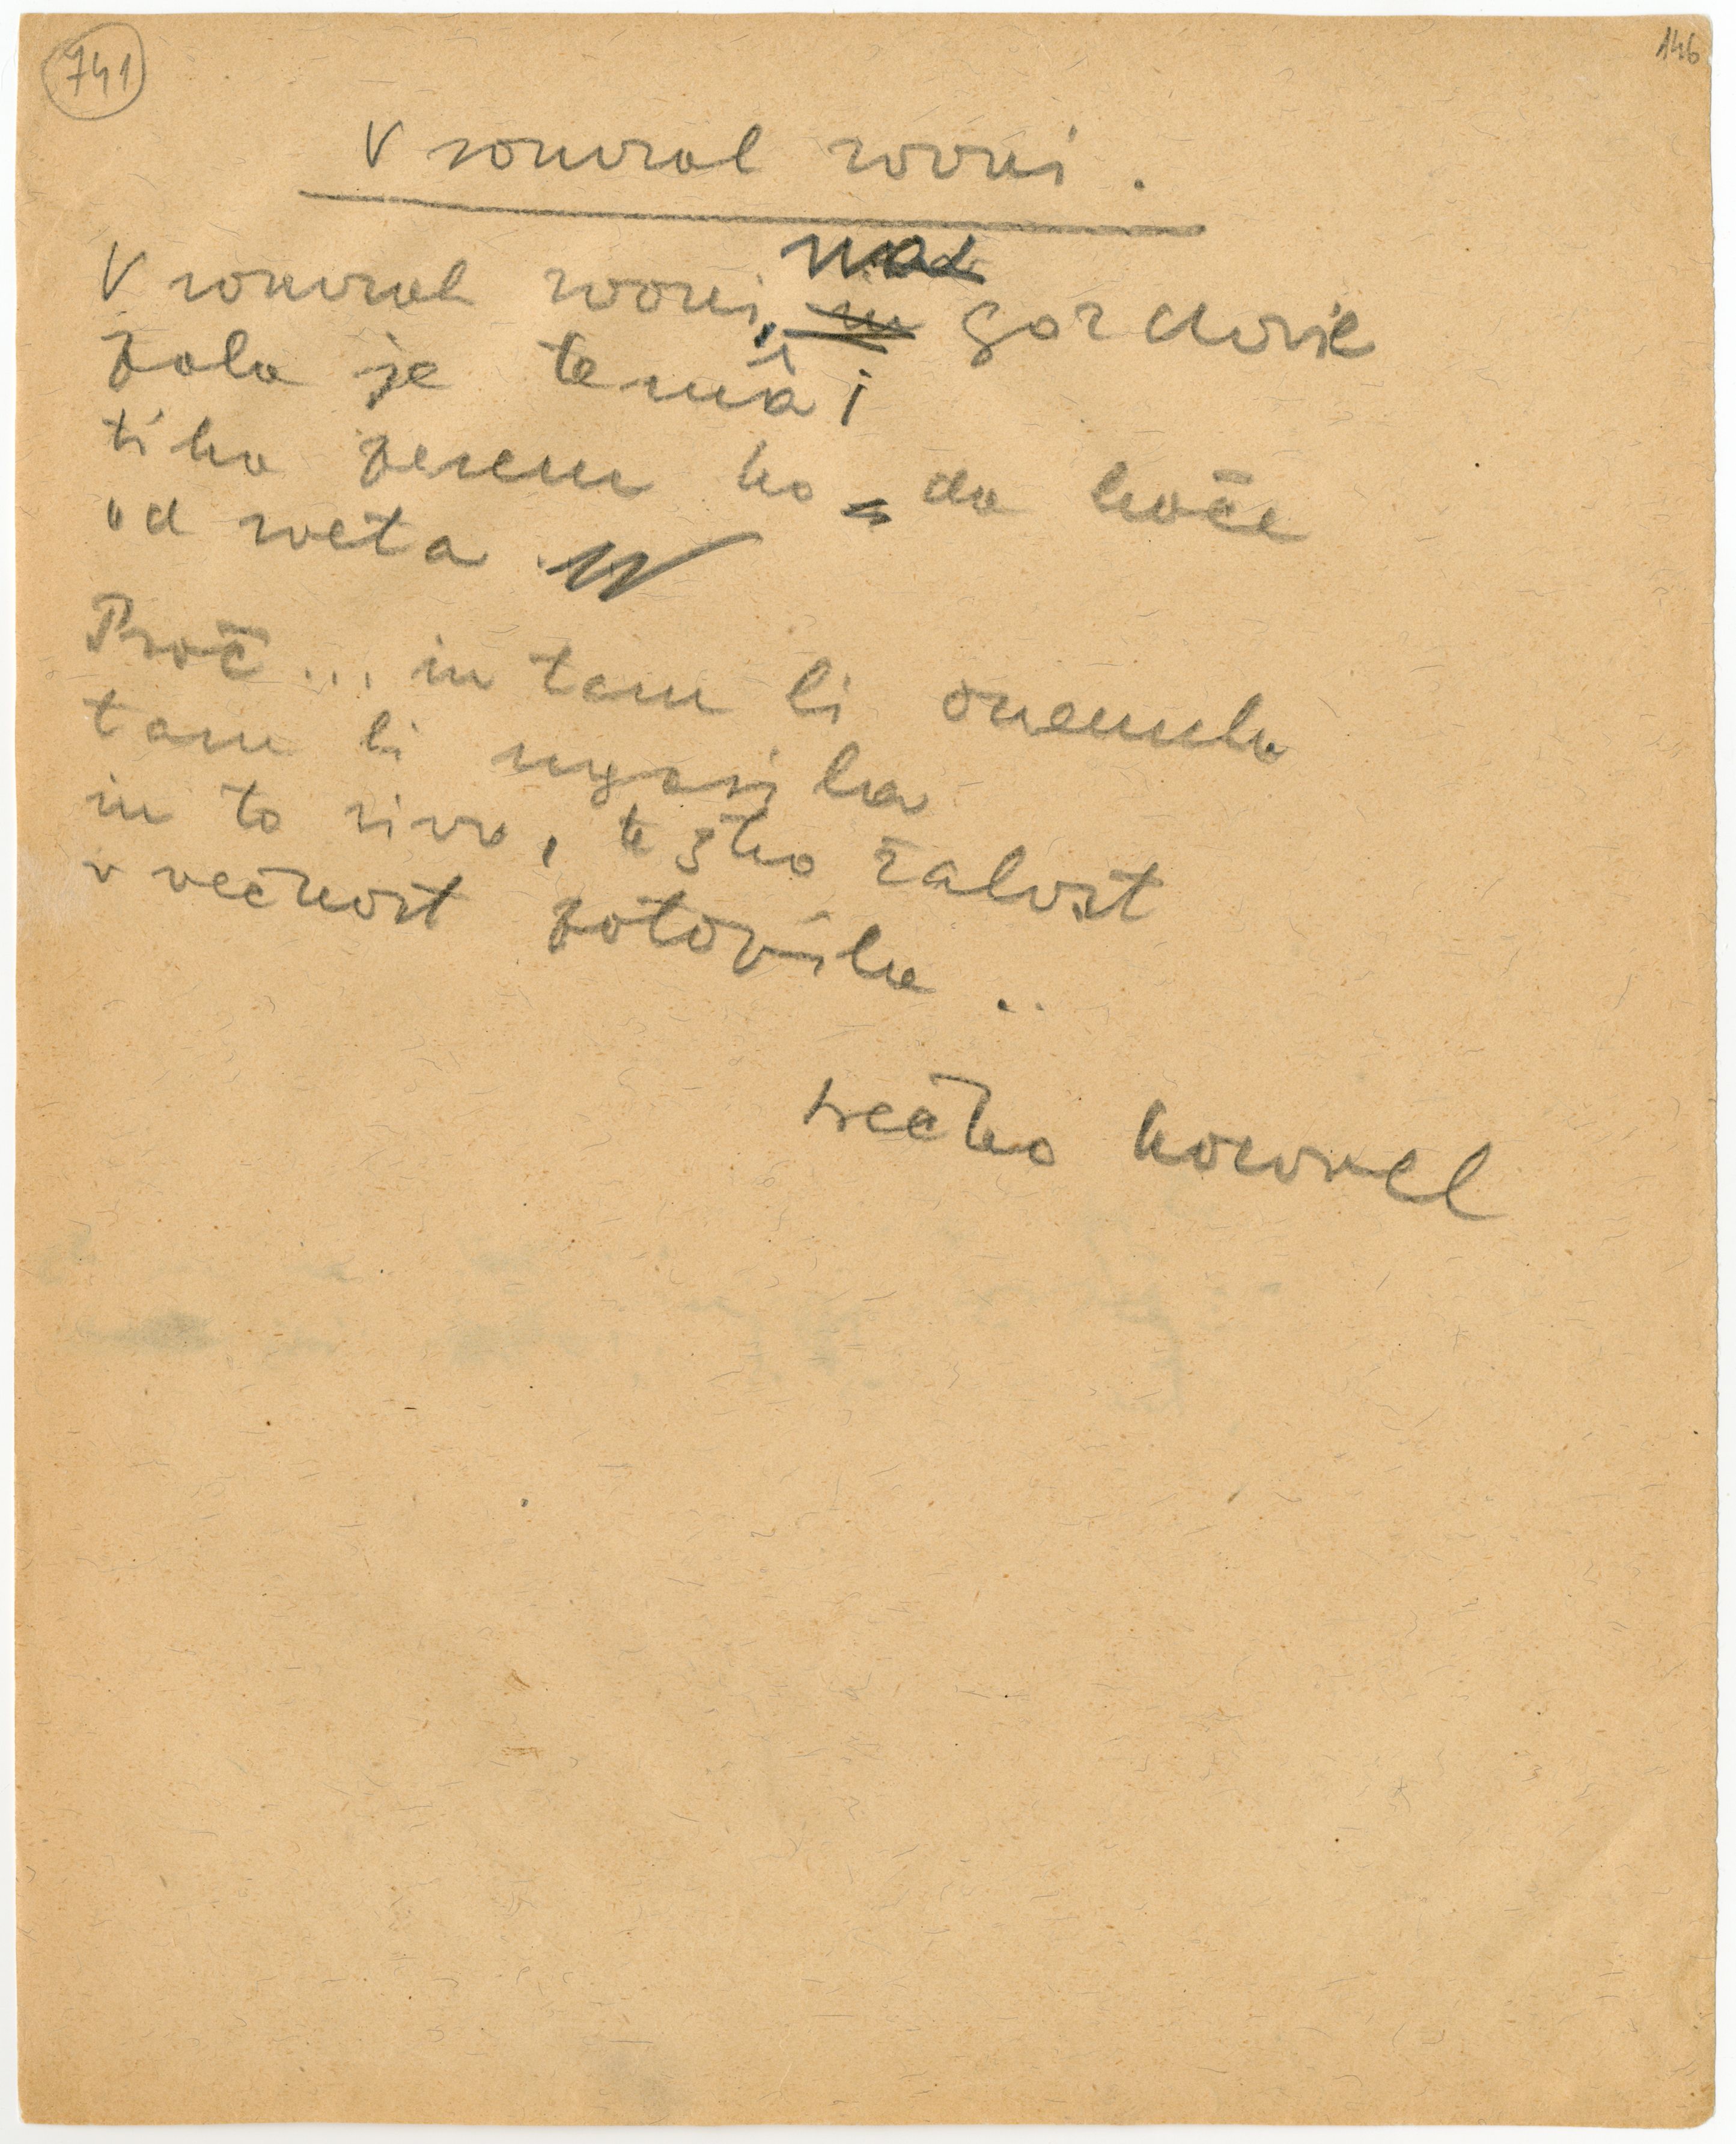 741
146
V somrak zvoni.
nad
V somrak zvoni, in gozdovje
pala je temâ;
tiha pesem ko da hoče
od sveta
Proč... in tam bi onemela
tam bi ugasila
in to sivo, težko žalost
v večnost potopila..
Srečko Kosovel